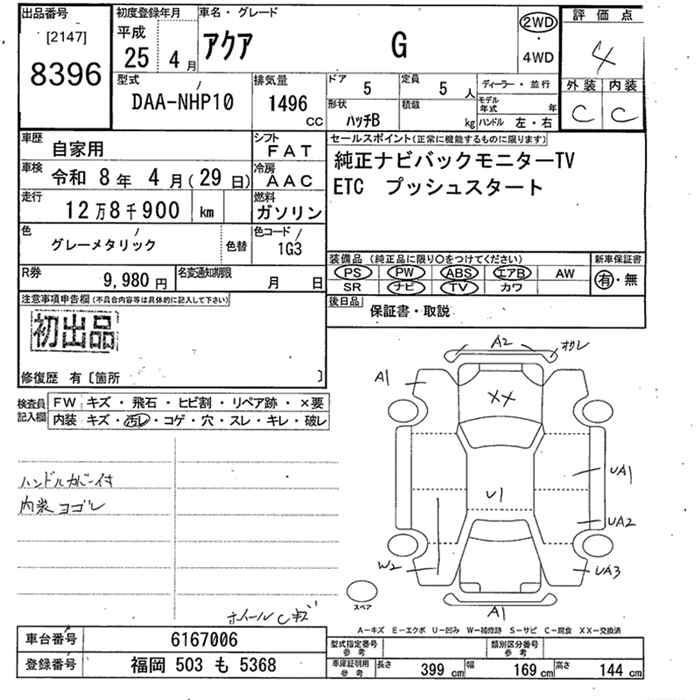 出品番号
[2147]
8396
初度登録年月
平成
25 4月
車名・グレード
アクア G
2WD
・
4WD
評価点
4
外装 内装
C C
型式
DAA-NHP10
排気量
1496
cc
ドア
5
定員
5 人
形状
ハッチB
積載
kg
ディーラー・並行
モデル年式 年
ハンドル 左・右
車歴
自家用
シフト
FAT
車検
令和 8年 4月(29日)
冷房
AAC
走行
12万8千900 km
燃料
ガソリン
色
グレーメタリック
色替
色コード
1G3
R券
9,980円
名変通知期限
月 日
セールスポイント(正常に機能するものに限ります)
純正ナビバックモニターTV
ETC プッシュスタート
装備品 (純正品に限り〇をつけてください)
PS PW ABS エアB AW
SR ナビ TV カワ
新車保証書
有・無
後日品
保証書・取説
注意事項申告欄(不具合内容等は具体的に記入して下さい)
初出品
修復歴 有〔箇所 〕
検査員記入欄
FW キズ・飛石・ヒビ割・リペア跡・×要
内装 キズ・汚レ・コゲ・穴・スレ・キレ・破レ
ハンドルカバー付
内装ヨゴレ
ホイールCキズ
A2
A1
XX
U1
UA1
UA2
UA3
W2
A1
スペア
A-キズ E-エクボ U-凹み W-補修跡 S-サビ C-腐食 XX-交換済
車台番号
6167006
登録番号
福岡 503 も 5368
型式指定番号
参考
類別区分番号
参考
車庫証明用
参考
長さ 399 cm
幅 169 cm
高さ 144 cm